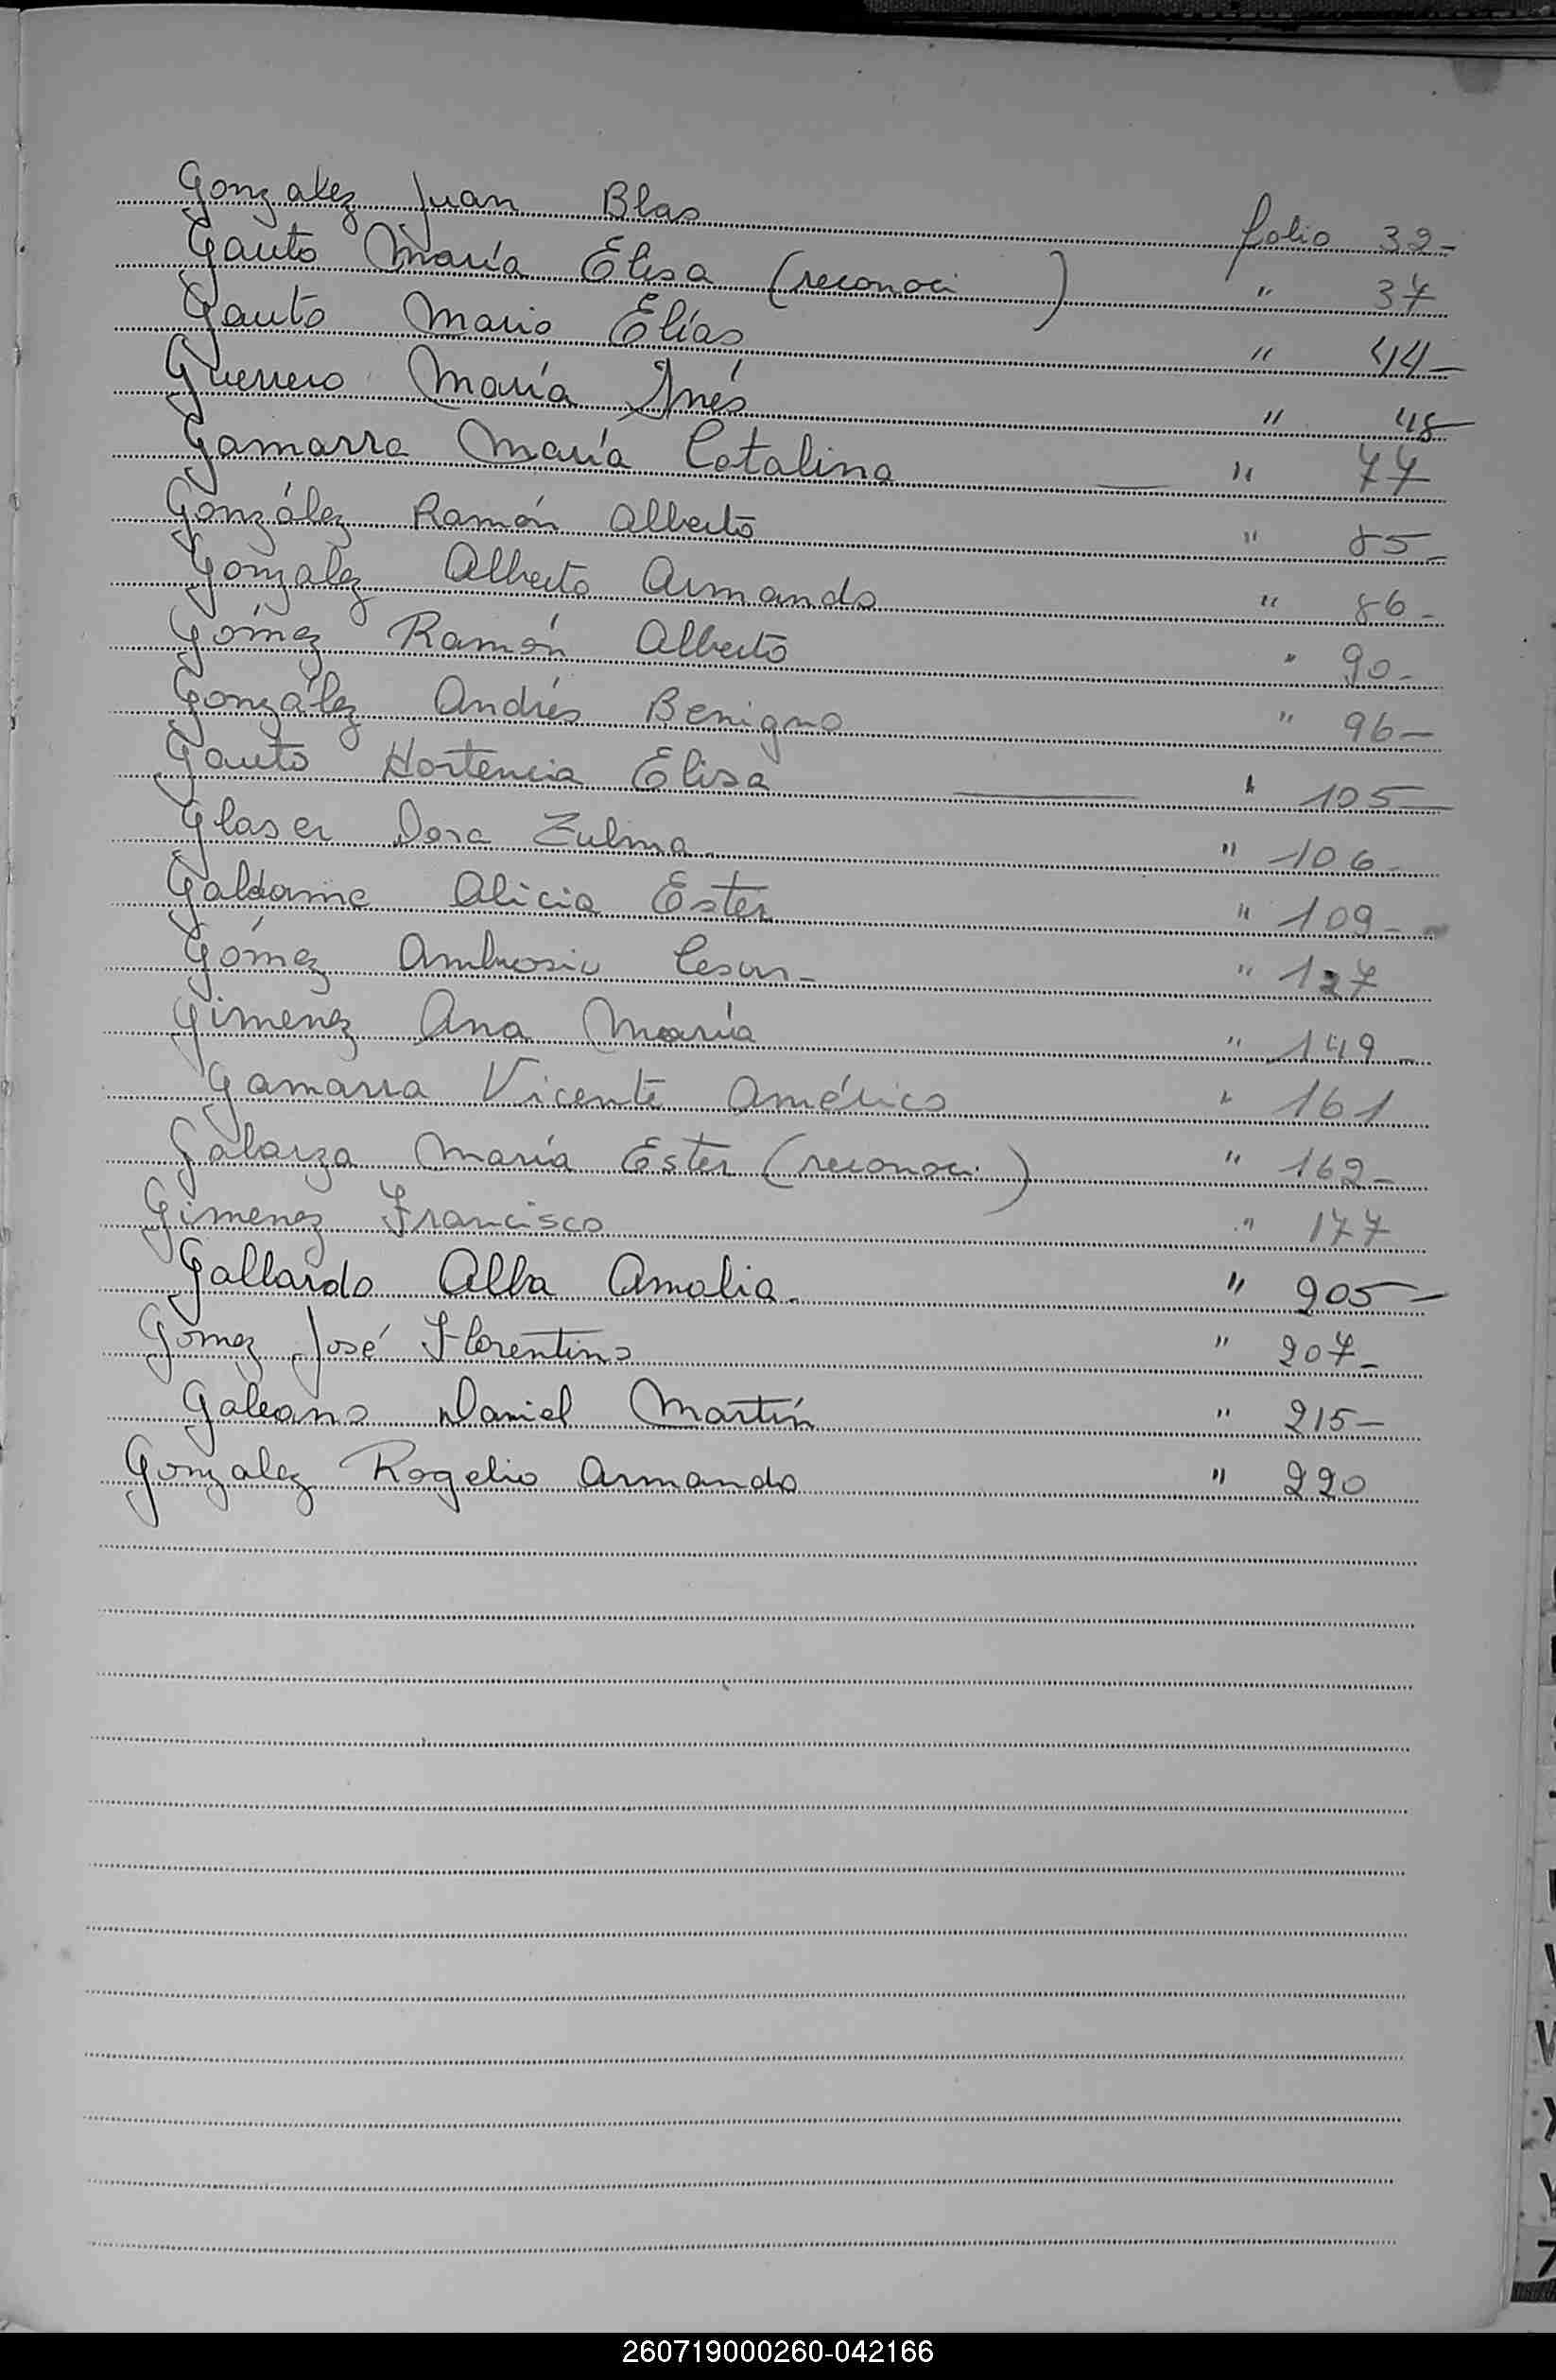 Gonzalez Juan Blas folio 32-
Gauto María Elisa (reconoci ) " 37
Gauto Mario Elías " 44-
Guerrero María Inés " 48-
Gamarra María Catalina — " 77
González Ramón Alberto " 85-
Gonzalez Alberto Armando " 86-
Gómez Ramón Alberto " 90-
González Andrés Benigno " 96-
Gauto Hortencia Elisa — " 105-
Glaser Dora Zulma " 106-
Galdame Alicia Ester " 109-
Gómez Ambrosio Cesar- " 127
Gimenez Ana María " 149-
Gamarra Vicente Américo " 161
Galarza María Ester (reconoci.) " 162-
Gimenez Francisco " 177
Gallardo Alba Amalia. " 205-
Gomez José Florentino " 207-
Galeano Daniel Martín " 215-
Gonzalez Rogelio Armando " 220
V
X
Y
Z
260719000260-042166